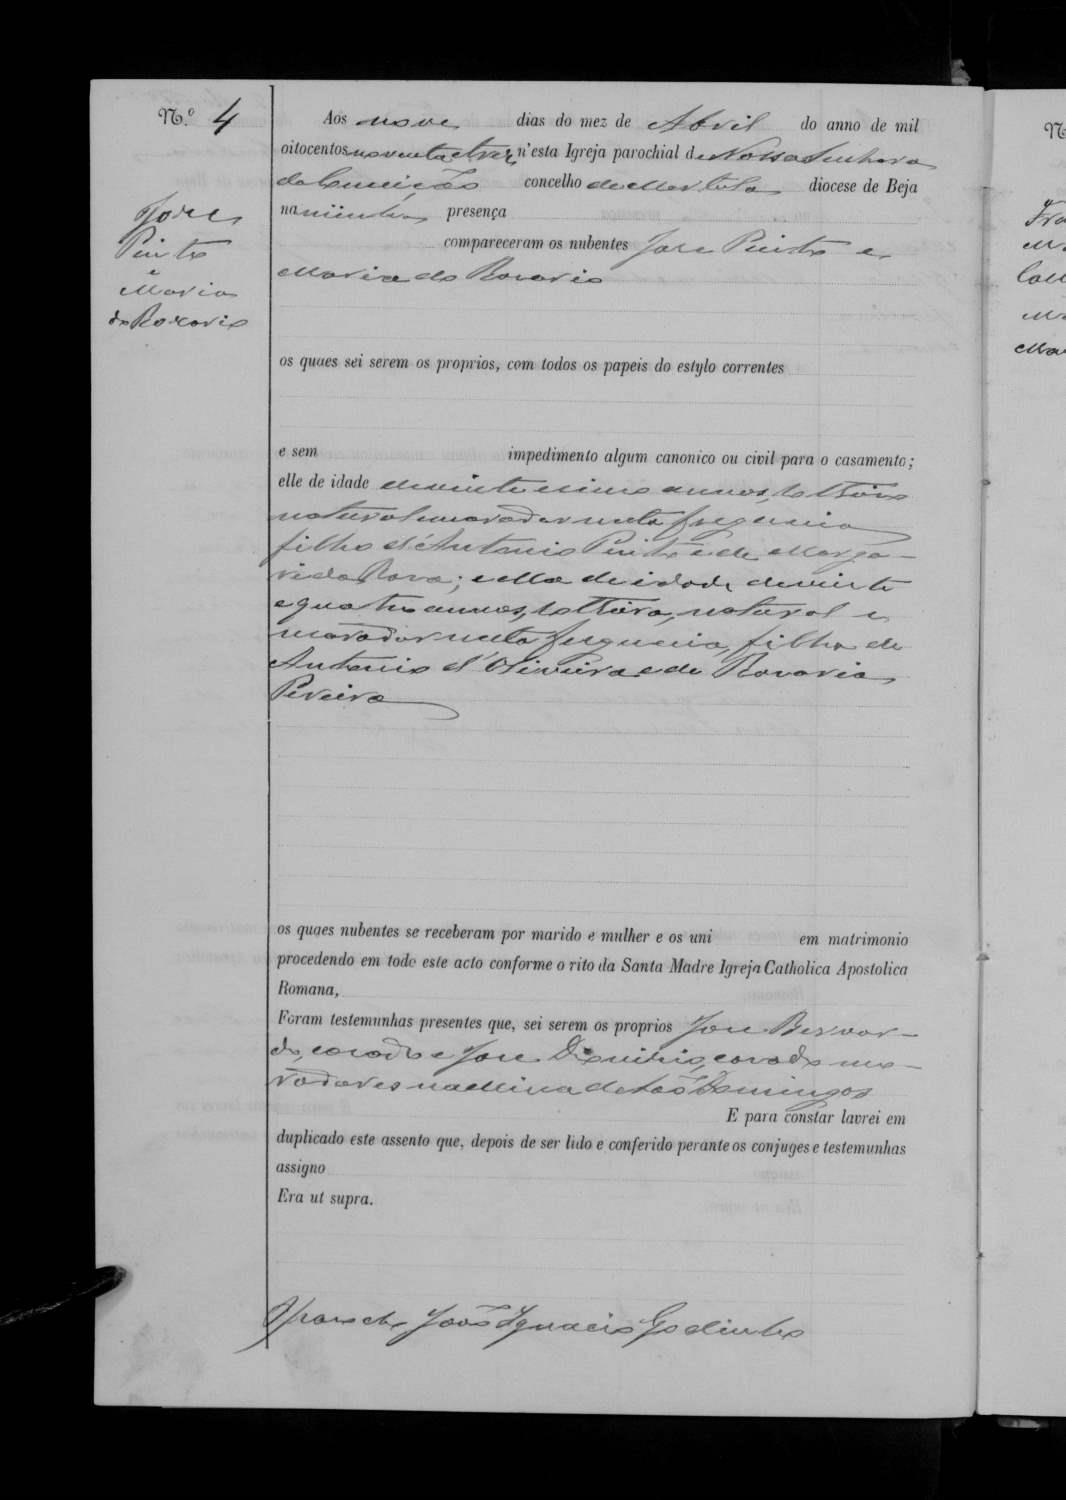 N.º 4
Aos nove dias do mez de Abril do anno de mil
oitocentos noventa e trez n'esta Igreja parochial de Nossa Senhora
da Conceição concelho de Mertola diocese de Beja
na minha presença
compareceram os nubentes José Pinto e
Maria do Rosario
José
Pinto
e
Maria
do Rosario
os quaes sei serem os proprios, com todos os papeis do estylo correntes
e sem impedimento algum canonico ou civil para o casamento;
elle de idade de vinte e cinco annos, solteiro
natural e morador nesta freguesia
filho d'Antonio Pinto e de Marga-
rida Rosa; e ella de idade de vinte
e quatro annos, solteira, natural e
morador nesta freguesia, filha de
Antonio d'Oliveira e de Rosaria
Pereira
os quaes nubentes se receberam por marido e mulher e os uni em matrimonio
procedendo em todo este acto conforme o rito da Santa Madre Igreja Catholica Apostolica
Romana,
Foram testemunhas presentes que, sei serem os proprios José Bernar-
do, casado e José Dionisio, casado mo-
radores na Mina de São Domingos
E para constar lavrei em
duplicado este assento que, depois de ser lido e conferido perante os conjuges e testemunhas
assigno
Era ut supra.
O Parocho João Ignacio Godinho
N
Fra